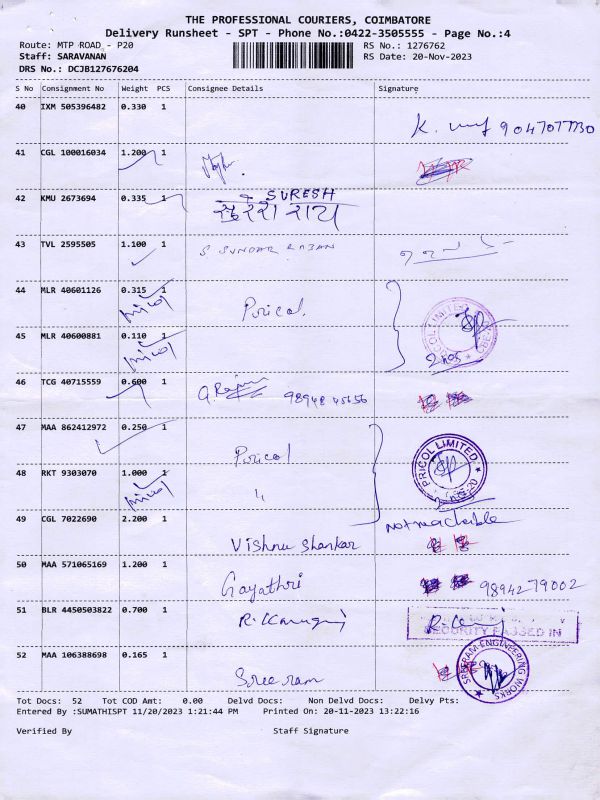 THE PROFESSIONAL COURIERS, COIMBATORE
Delivery Runsheet - SPT - Phone No.:0422-3505555 - Page No.:4
Route: MTP ROAD - P20
RS No.: 1276762
Staff: SARAVANAN
RS Date: 20-Nov-2023
DRS No.: DCJB127676204
S No Consignment No Weight PCS Consignee Details Signature
40 IXM 505396482 0.330 1
K.
41 CGL 100016034 1.200 1
42 KMU 2673694 0.335 1 SURESH
43 TVL 2595505 1.100 1 S SUNDAR RAJAN
44 MLR 40601126 0.315 1
Pricol
Pricol
PRICOL LIMITED
45 MLR 40600881 0.110 1
Pricol
2 nos
46 TCG 40715559 0.600 1
98948 45656
47 MAA 862412972 0.250 1
Pricol
PRICOL LIMITED
48 RKT 9303070 1.000 1
Pricol
"
49 CGL 7022690 2.200 1
not reachable
Vishnu Shankar
50 MAA 571065169 1.200 1
Gayathri
9894279002
51 BLR 4450503822 0.700 1
SECURITY PASSED IN
52 MAA 106388698 0.165 1
Sree ram
SRI RAM ENGINEERING WORKS
Tot Docs: 52 Tot COD Amt: 0.00 Delvd Docs: Non Delvd Docs: Delvy Pts:
Entered By :SUMATHISPT 11/20/2023 1:21:44 PM Printed On: 20-11-2023 13:22:16
Verified By Staff Signature